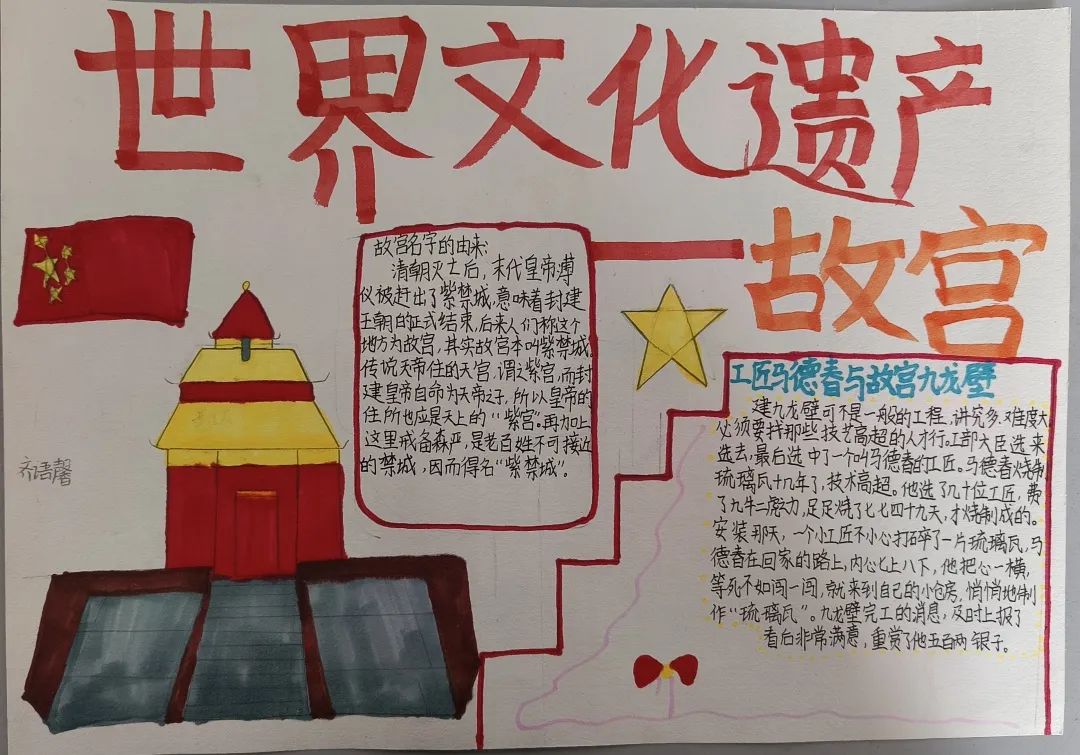 世界文化遗产
故宫
故宫名字的由来:
清朝灭亡后，末代皇帝溥
仪被赶出了紫禁城，意味着封建
王朝的正式结束，后来人们称这个
地方为故宫，其实故宫本叫紫禁城。
传说天帝住的天宫，谓之紫宫，而封
建皇帝自命为天帝之子，所以皇帝的
住所也应是天上的“紫宫”。再加上
这里戒备森严，是老百姓不可接近
的禁城，因而得名“紫禁城”。
工匠马德春与故宫九龙壁
建九龙壁可不是一般的工程，讲究多，难度大
必须要找那些技艺高超的人才行。工部大臣选来
选去，最后选中了一个叫马德春的工匠。马德春烧制
琉璃瓦十几年了，技术高超。他选了几十位工匠，费
了九牛二虎力，足足烧了七七四十九天，才烧制成的。
安装那天，一个小工匠不小心打碎了一片琉璃瓦，马
德春在回家的路上，内心七上八下，他把心一横，
等死不如闯一闯，就来到自己的小仓房，悄悄地制
作“琉璃瓦”。九龙壁完工的消息，及时上报了
看后非常满意，重赏了他五百两银子。
齐语馨